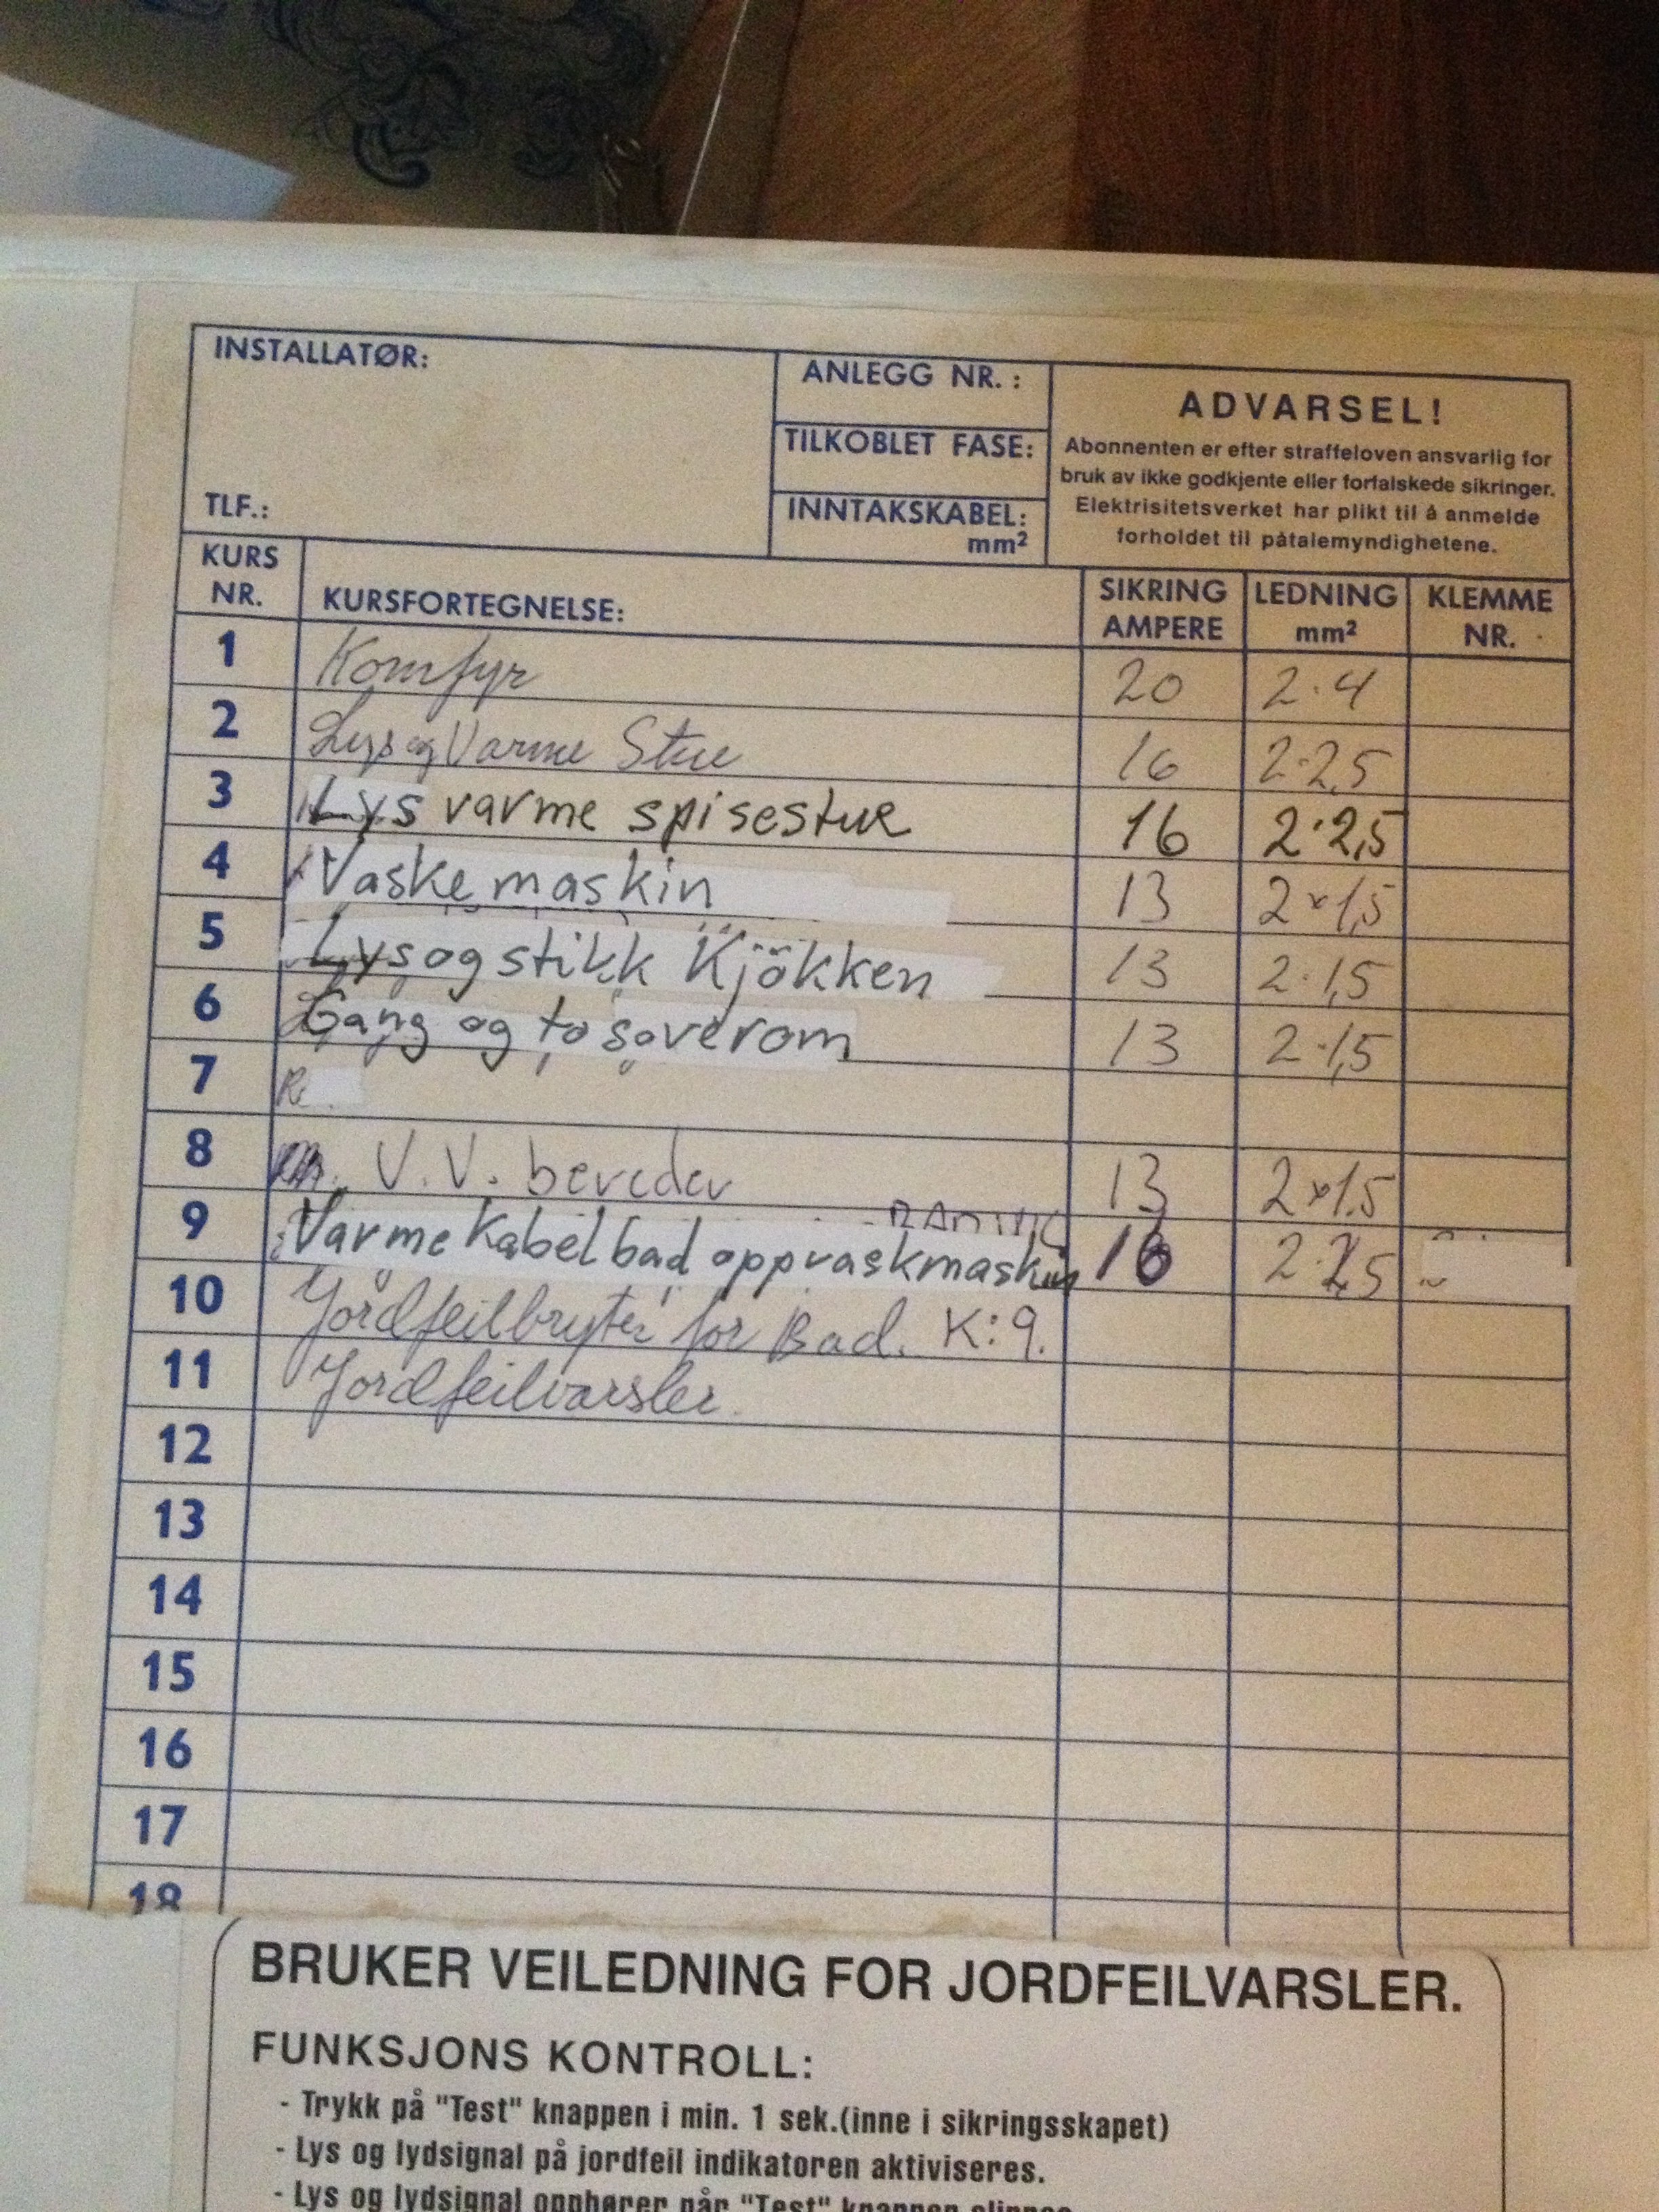 INSTALLATØR:
TLF.:
ANLEGG NR. :
TILKOBLET FASE:
INNTAKSKABEL:
mm²
ADVARSEL!
Abonnenten er efter straffeloven ansvarlig for
bruk av ikke godkjente eller forfalskede sikringer.
Elektrisitetsverket har plikt til å anmelde
forholdet til påtalemyndighetene.
KURS NR. KURSFORTEGNELSE: SIKRING AMPERE LEDNING mm² KLEMME NR.
1 Komfyr 20 2·4
2 Lys og Varme Stue 16 2·2,5
3 Lys varme spisestue 16 2·2,5
4 Vaske maskin 13 2x1,5
5 Lys og stikk Kjökken 13 2·1,5
6 Gang og to soverom 13 2·1,5
7
8 V.V. bereder 13 2x1.5
9 Varme Kabel bad oppvaskmaskin 16 2·2,5
10 Jordfeilbryter for Bad. K:9.
11 Jordfeilvarsler.
12
13
14
15
16
17
18
BRUKER VEILEDNING FOR JORDFEILVARSLER.
FUNKSJONS KONTROLL:
- Trykk på "Test" knappen i min. 1 sek.(inne i sikringsskapet)
- Lys og lydsignal på jordfeil indikatoren aktiviseres.
- Lys og lydsignal opphører når "Test" knappen slippes